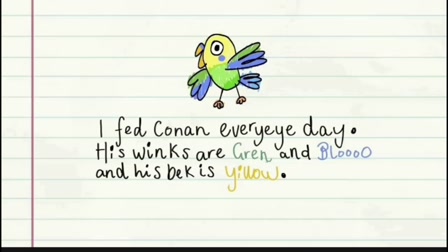 I fed Conan everyeye day.
His winks are Gren and BLoooO
and his bek is yillow.